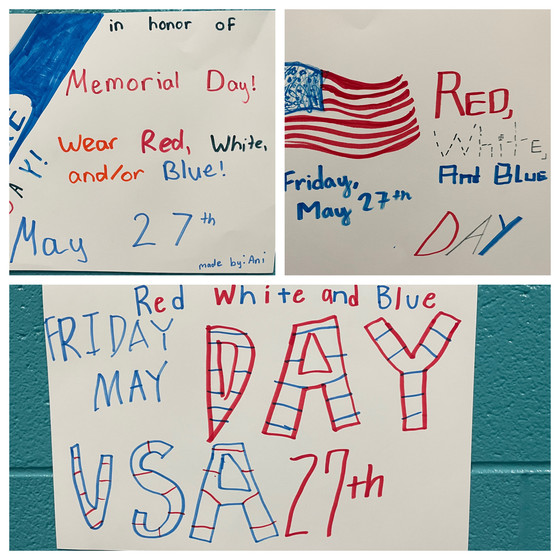 in honor of
Memorial Day!
Wear Red, White,
and/or Blue!
May 27th
made by: Ani
RED,
White,
And Blue
Friday,
May 27th
DAY
Red White and Blue
FRIDAY
MAY
DAY
USA 27th